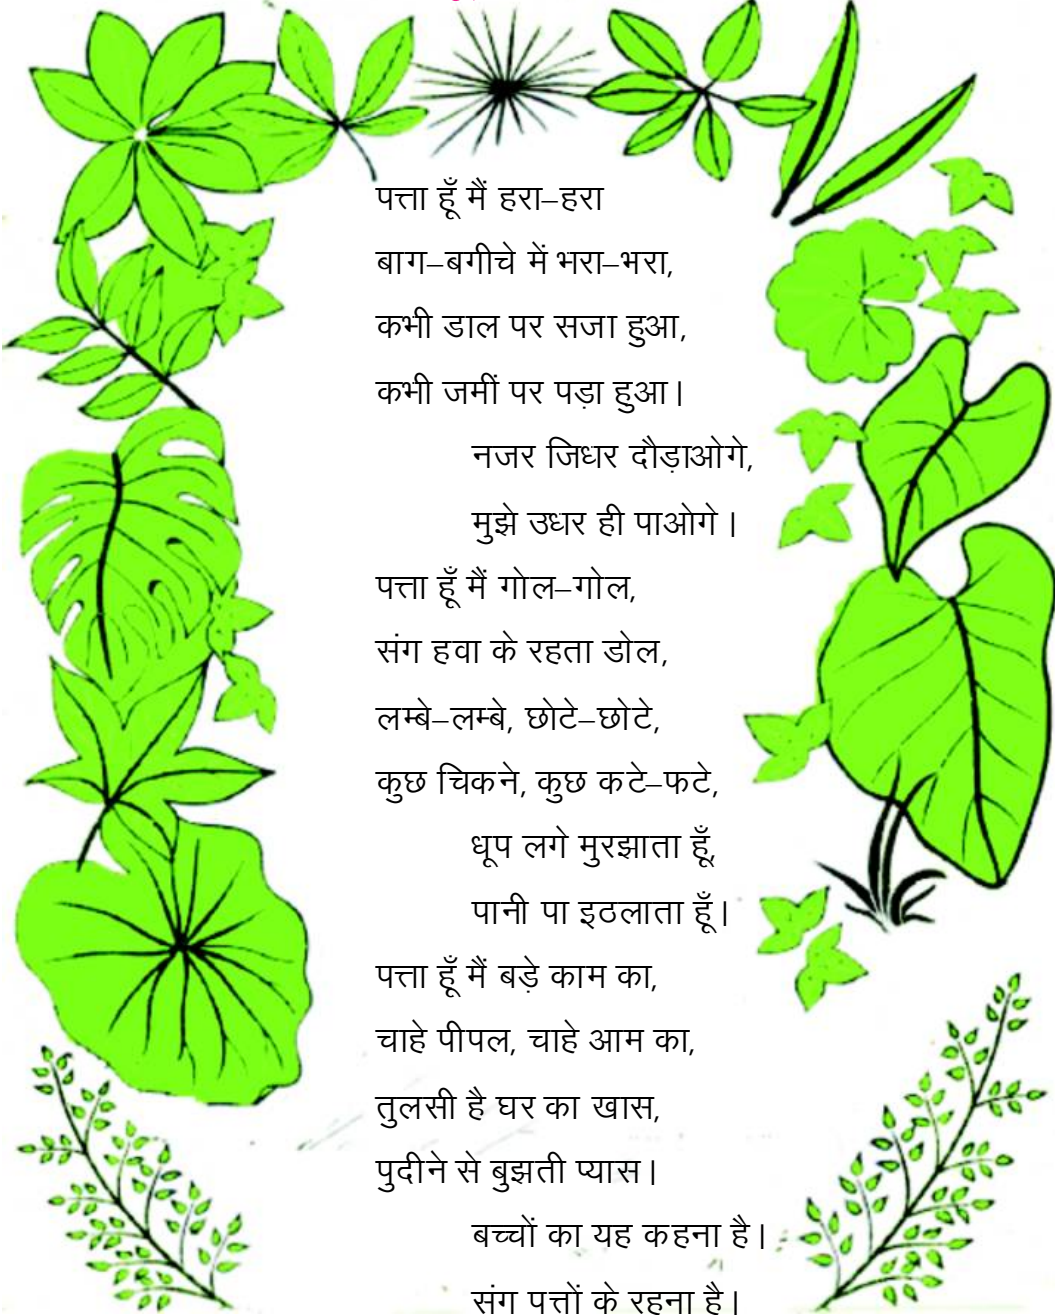 पत्ता हूँ मैं हरा–हरा
बाग–बगीचे में भरा–भरा,
कभी डाल पर सजा हुआ,
कभी जमीं पर पड़ा हुआ।
नजर जिधर दौड़ाओगे,
मुझे उधर ही पाओगे।
पत्ता हूँ मैं गोल–गोल,
संग हवा के रहता डोल,
लम्बे–लम्बे, छोटे–छोटे,
कुछ चिकने, कुछ कटे–फटे,
धूप लगे मुरझाता हूँ,
पानी पा इठलाता हूँ।
पत्ता हूँ मैं बड़े काम का,
चाहे पीपल, चाहे आम का,
तुलसी है घर का खास,
पुदीने से बुझती प्यास।
बच्चों का यह कहना है।
संग पत्तों के रहना है।